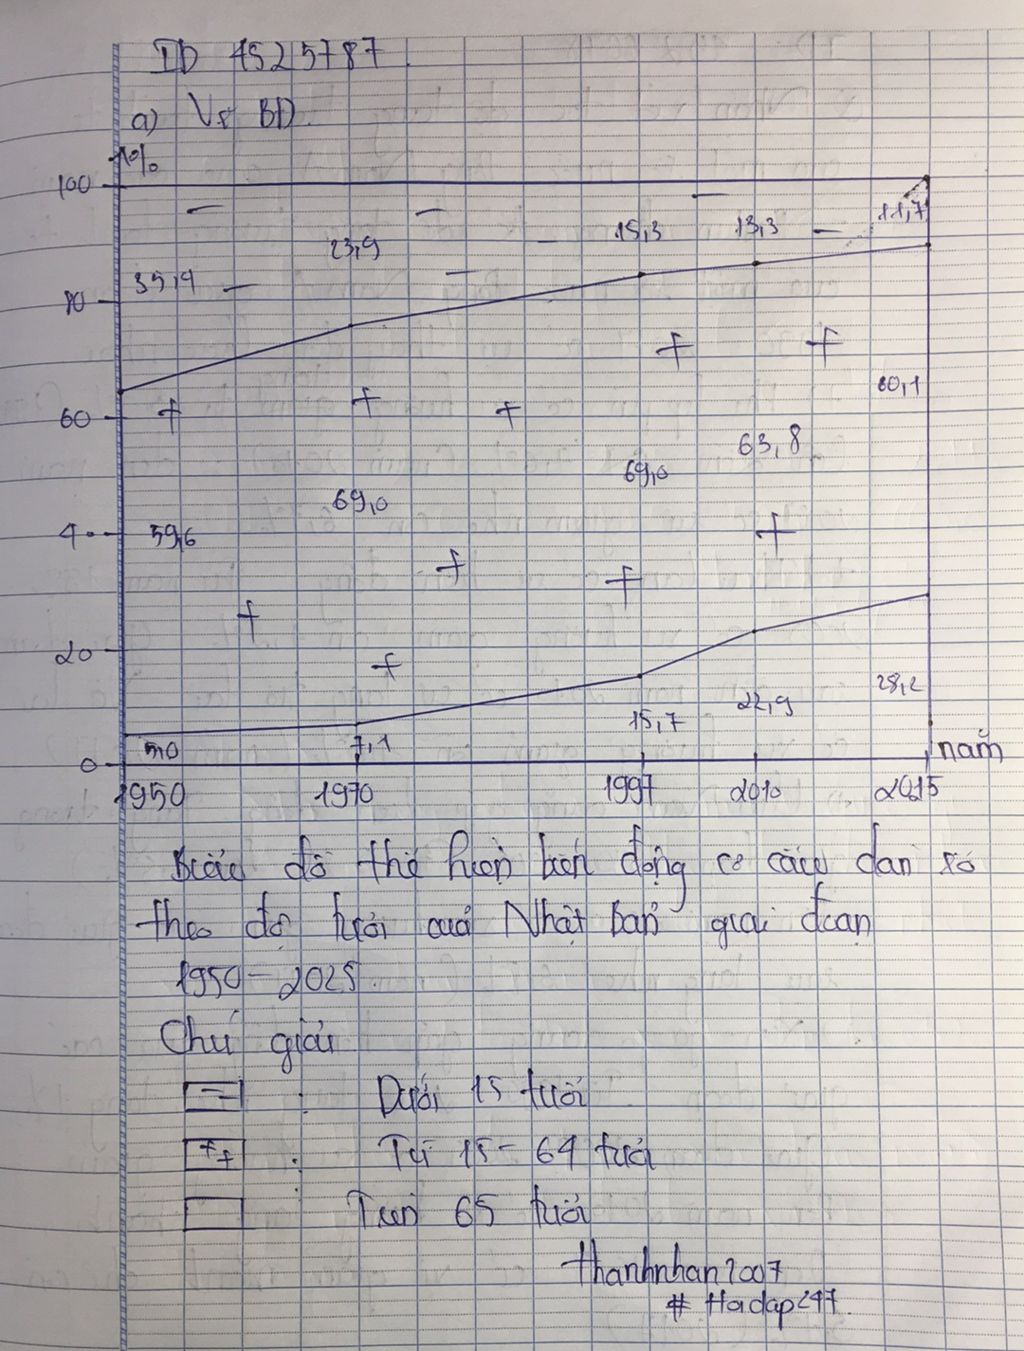 ID 4525787
a) Vẽ BĐ
%
100
11,7
15,3
13,3
23,9
35,4
80
60,1
60
63,8
69,0
69,0
59,6
4
20
28,2
22,9
15,7
7,1
5,0
0
năm
1950 1970 1997 2010 2015
Biểu đồ thể hiện biến động cơ cấu dân số
theo độ tuổi của Nhật bản giai đoạn
1950 - 2025
Chú giải
: Dưới 15 tuổi
: Từ 15 - 64 tuổi
Trên 65 tuổi
thanhnhan2007
# Hoidap247